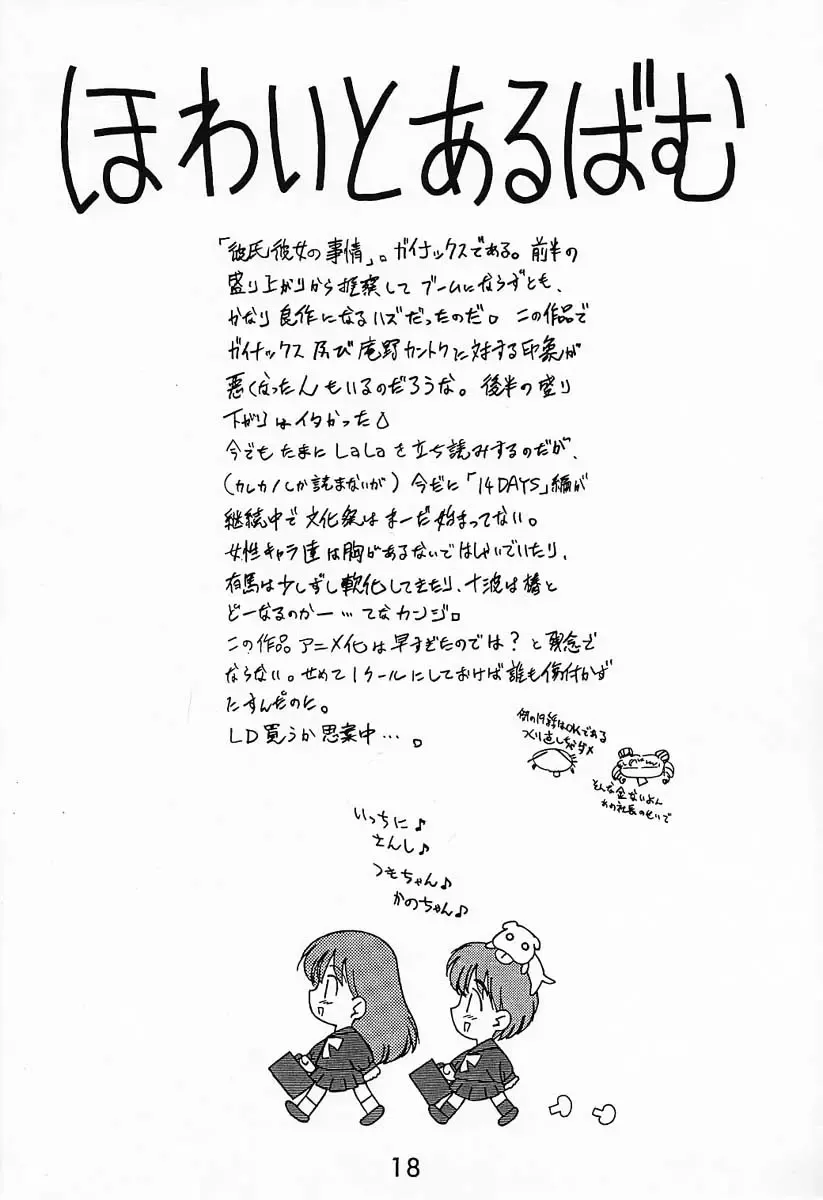 ほわいとあるばむ
「彼氏彼女の事情」。ガイナックスである。前半の
盛り上がりから推察して ブームにならずとも、
かなり良作になるハズだったのだ。この作品で
ガイナックス及び庵野カントクに対する印象が
悪くなったんもいるのだろうな。後半の盛り
下がりはイタかった
今でもたまに LaLa を立ち読みするのだが、
(カレカノしか読まないが) 今だに「14DAYS」編が
継続中で文化祭はまーだ始まってない。
女性キャラ達は胸があるないではしゃいでいたり、
有馬は少しずし軟化してきたり、十波は椿と
どーなるのかー…てなカンジ。
この作品アニメ化は早すぎたのでは?と残念で
ならない。せめて1クールにしておけば誰も傷付かず
たすんだのに。
LD買うか思案中…。
例の19話はOKである
つくり直しちゃダメ
そんな金ないよん
あの社長のせいで
いっちに♪
さんし♪
つもちゃん♪
かのちゃん♪
18